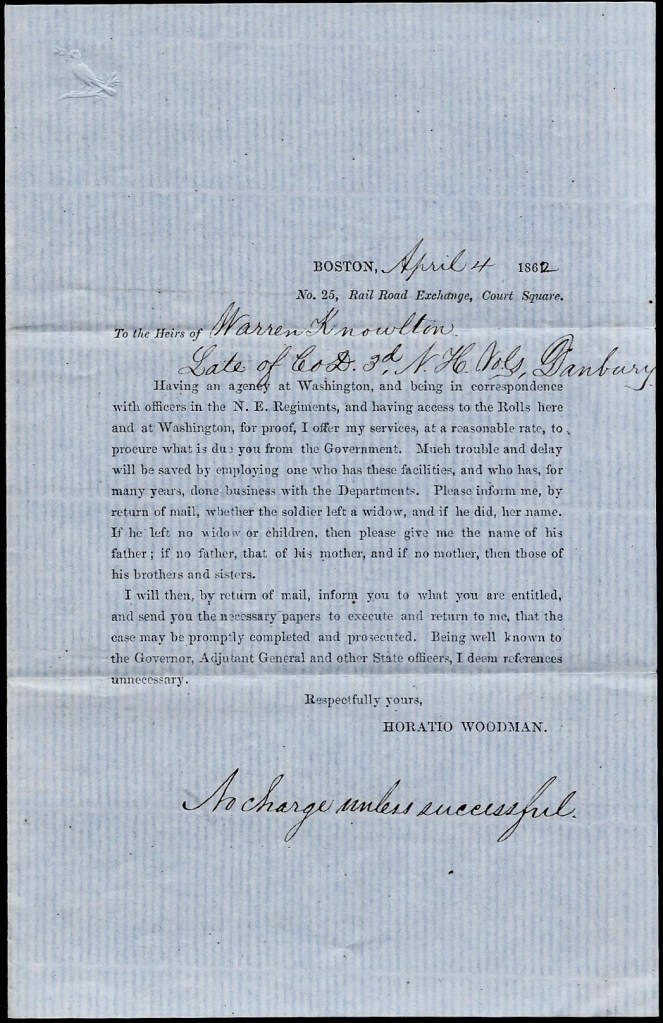 BOSTON, April 4 1862
No. 25, Rail Road Exchange, Court Square.
To the Heirs of Warren Knowlton.
Late of Co D. 3d, N. H. Vols, Danbury.
Having an agency at Washington, and being in correspondence
with officers in the N. E. Regiments, and having access to the Rolls here
and at Washington, for proof, I offer my services, at a reasonable rate, to
procure what is due you from the Government. Much trouble and delay
will be saved by employing one who has these facilities, and who has, for
many years, done business with the Departments. Please inform me, by
return of mail, whether the soldier left a widow, and if he did, her name.
If he left no widow or children, then please give me the name of his
father; if no father, that of his mother, and if no mother, then those of
his brothers and sisters.
I will then, by return of mail, inform you to what you are entitled,
and send you the necessary papers to execute and return to me, that the
case may be promptly completed and prosecuted. Being well known to
the Governor, Adjutant General and other State officers, I deem references
unnecessary.
Respectfully yours,
HORATIO WOODMAN.
No charge unless successful.